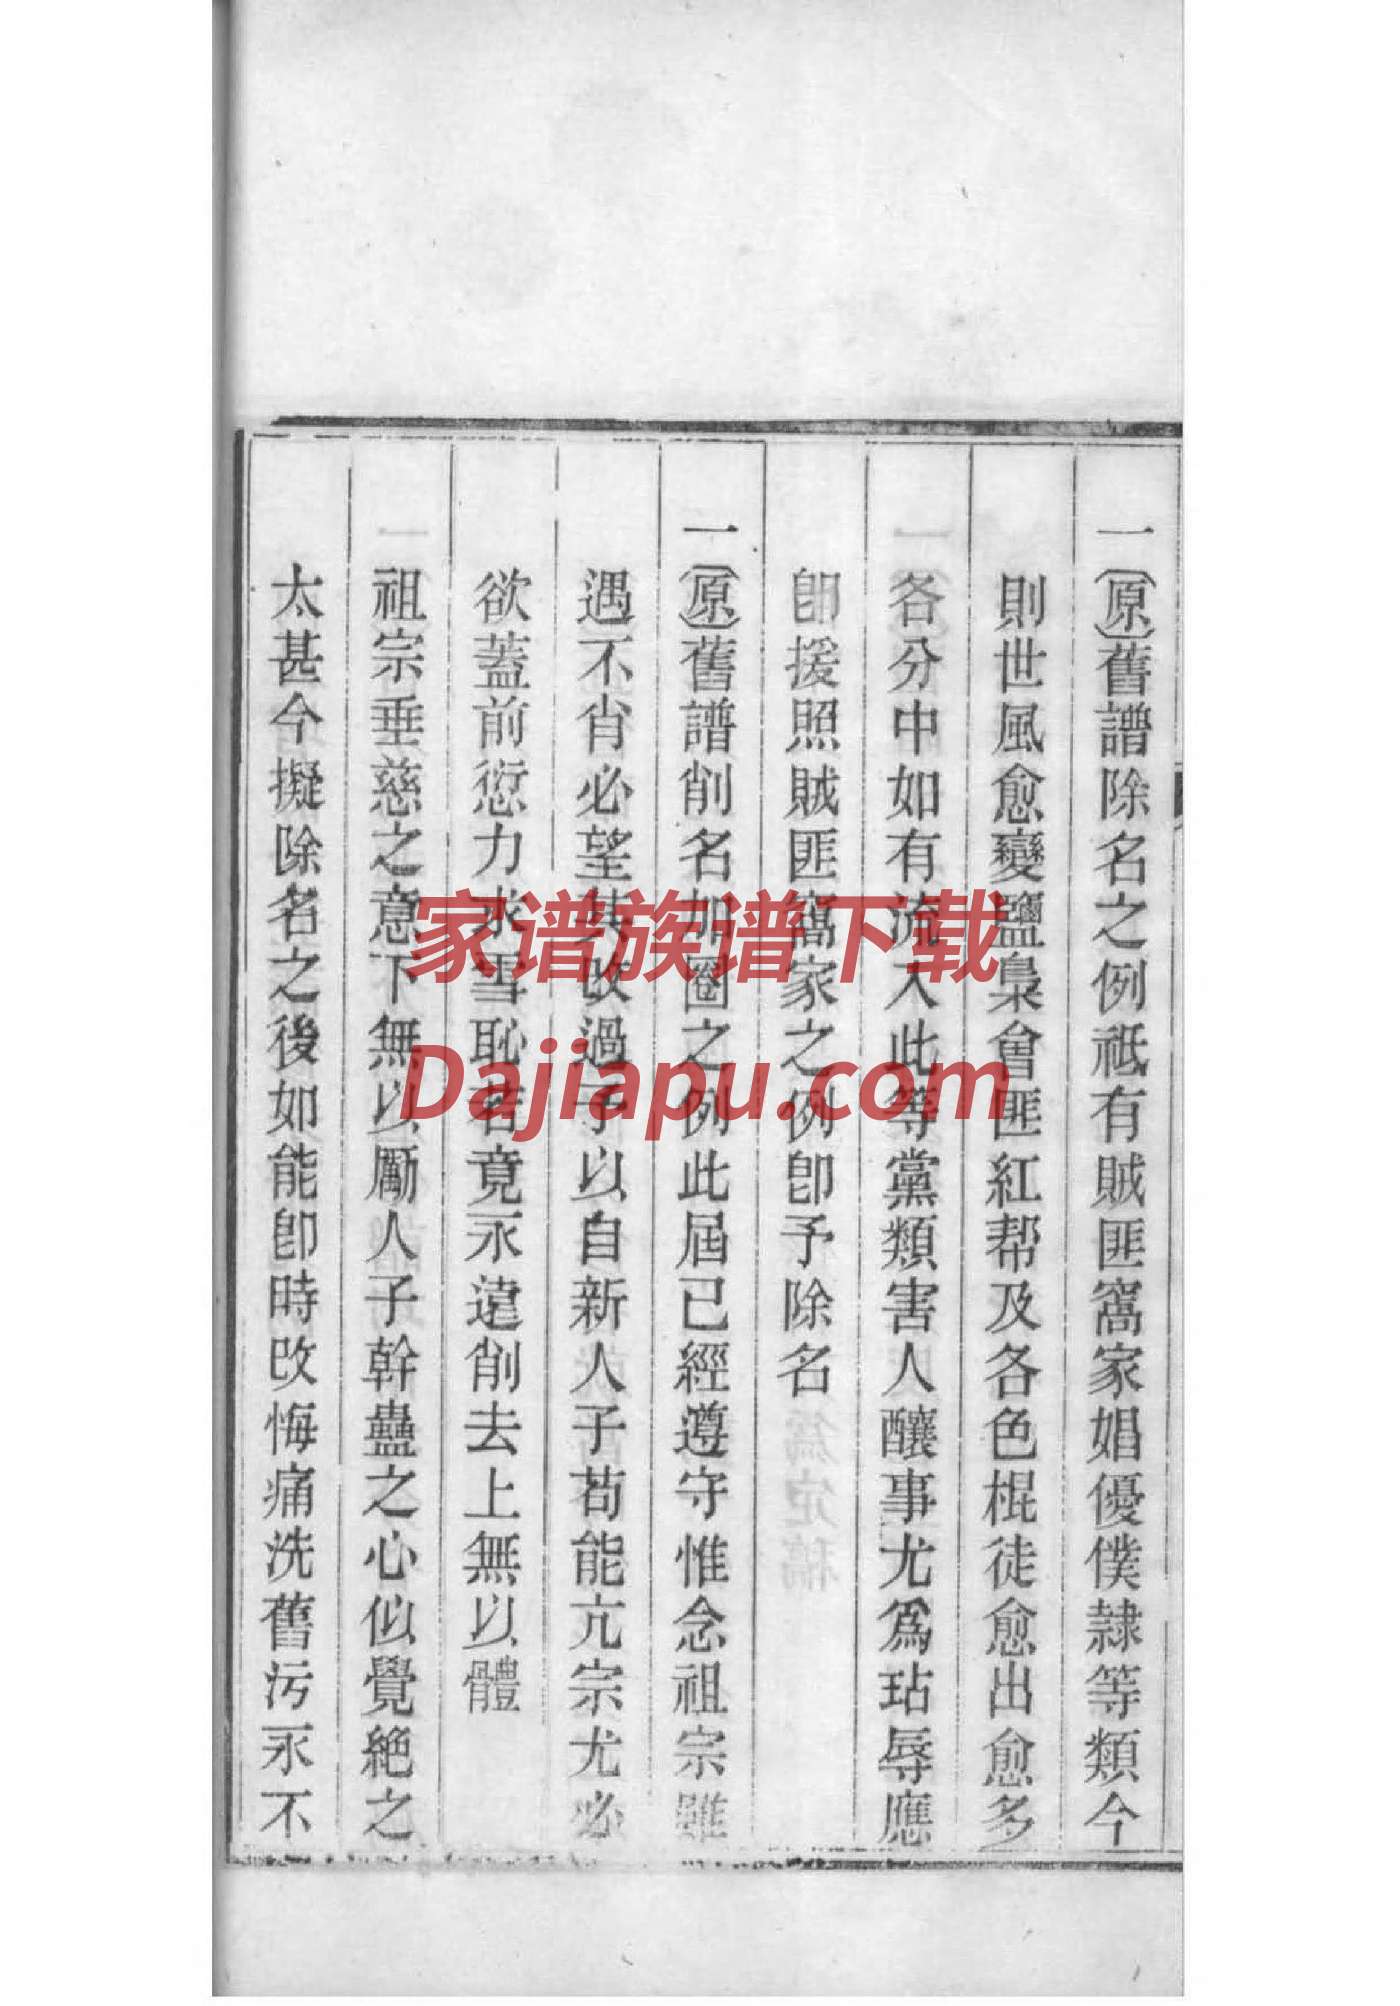 一（原）舊譜除名之例祇有賊匪窩家娼優僕隷等類今
則世風愈變鹽梟會匪紅帮及各色棍徒愈出愈多
各分中如有流入此等黨類害人釀事尤爲玷辱應
卽援照賊匪窩家之例卽予除名
一（原）舊譜削名加圈之例此屆已經遵守惟念祖宗雖
遇不肖必望其改過予以自新人子苟能亢宗尤必
欲蓋前愆力求雪恥若竟永遠削去上無以體
祖宗垂慈之意下無以勵人子幹蠱之心似覺絶之
太甚今擬除名之後如能卽時改悔痛洗舊污永不
家谱族谱下载
Dajiapu.com